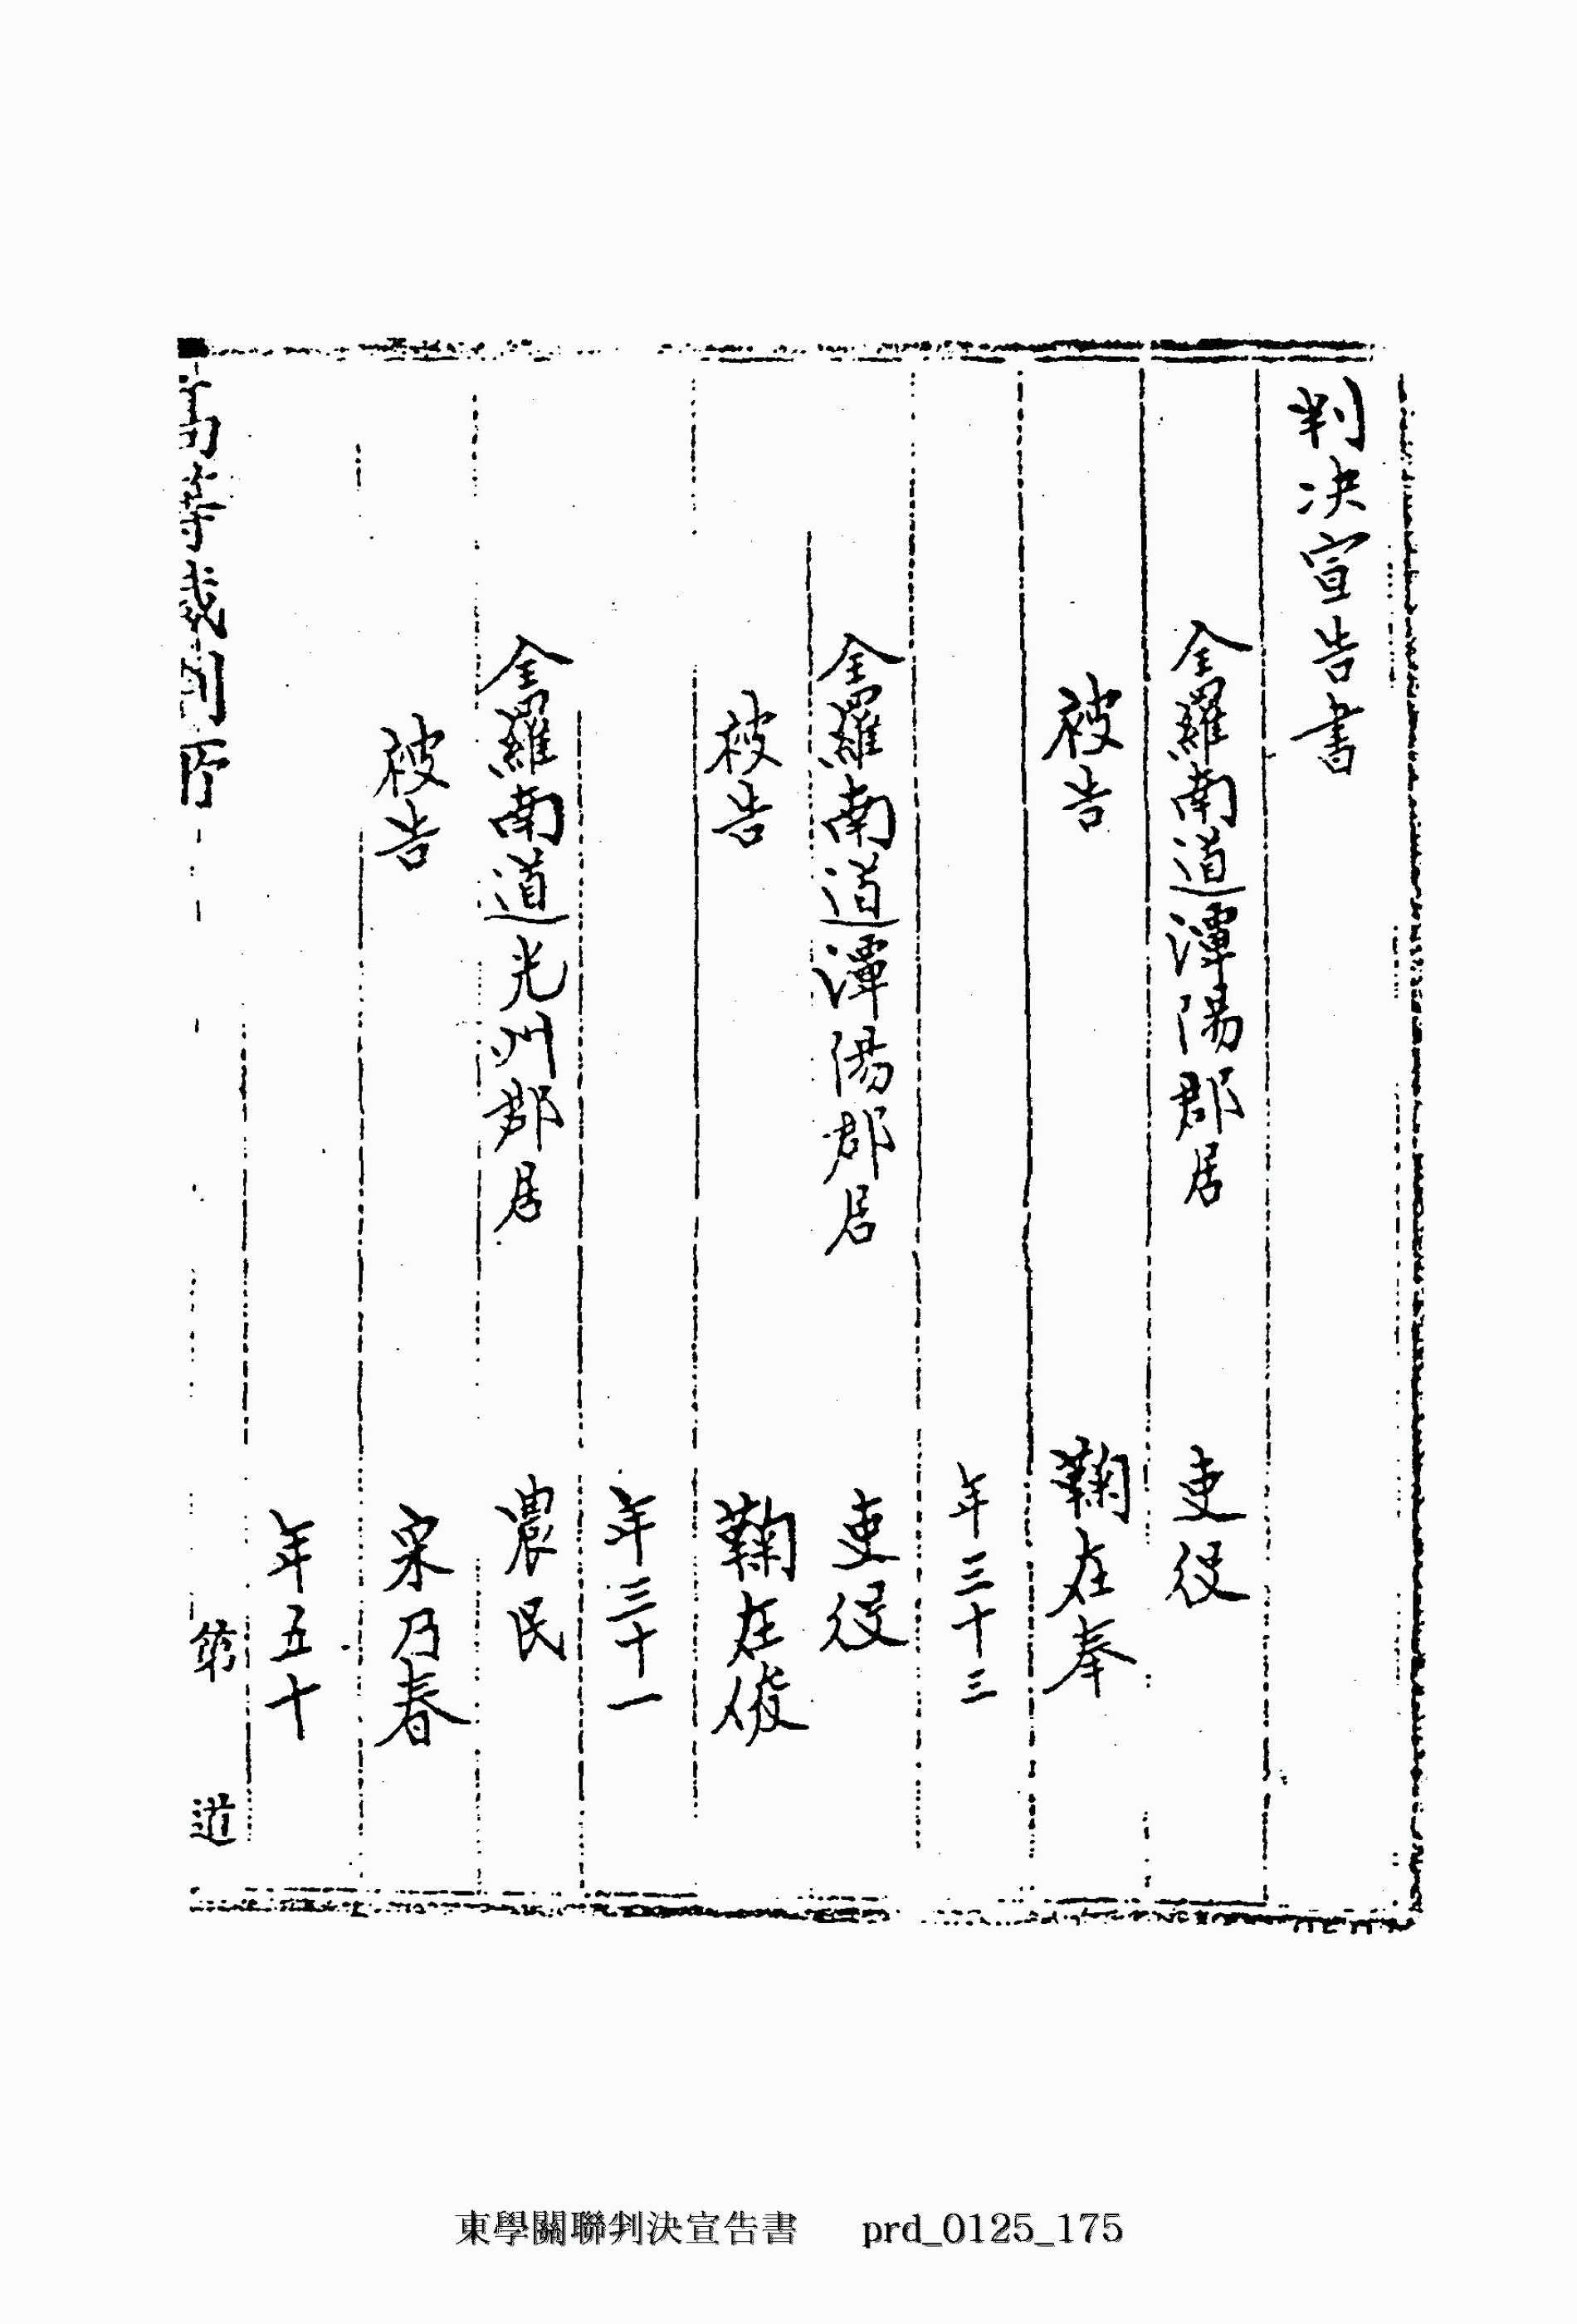 判決宣告書
全羅南道潭陽郡居　吏役
被告　鞠在奉
年三十三
全羅南道潭陽郡居　吏役
被告　鞠在俊
年三十一
全羅南道光州郡居　農民
被告　宋乃春
年五十
高等裁判所　第　道
東學關聯判決宣告書　prd_0125_175